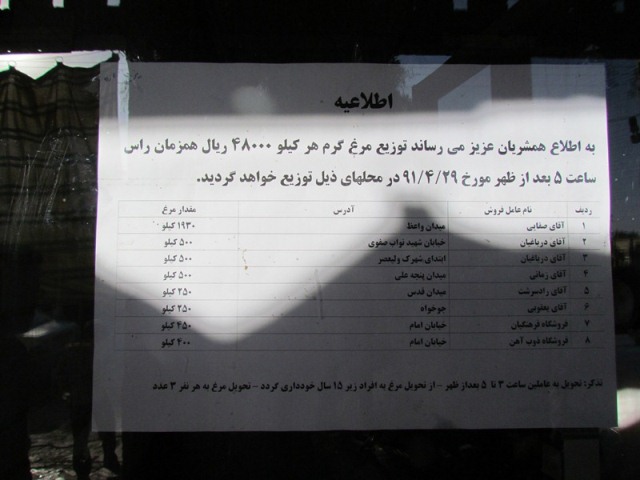 اطلاعیه
به اطلاع همشریان عزیز می رساند توزیع مرغ گرم هر کیلو ۴۸۰۰۰ ریال همزمان راس
ساعت ۵ بعد از ظهر مورخ ۹۱/۴/۲۹ در محلهای ذیل توزیع خواهد گردید.
ردیف نام عامل فروش آدرس مقدار مرغ
۱ آقای صفایی میدان واعظ ۱۹۳۰ کیلو
۲ آقای درباغیان خیابان شهید نواب صفوی ۵۰۰ کیلو
۳ آقای درباغیان ابتدای شهرک ولیعصر ۵۰۰ کیلو
۴ آقای زمانی میدان پنجه علی ۵۰۰ کیلو
۵ آقای رادسرشت میدان قدس ۲۵۰ کیلو
۶ آقای یعقوبی جوخواه ۲۵۰ کیلو
۷ فروشگاه فرهنگیان خیابان امام ۴۵۰ کیلو
۸ فروشگاه ذوب آهن خیابان امام ۴۰۰ کیلو
تذکر: تحویل به عاملین ساعت ۳ تا ۵ بعداز ظهر – از تحویل مرغ به افراد زیر ۱۵ سال خودداری گردد – تحویل مرغ به هر نفر ۳ عدد